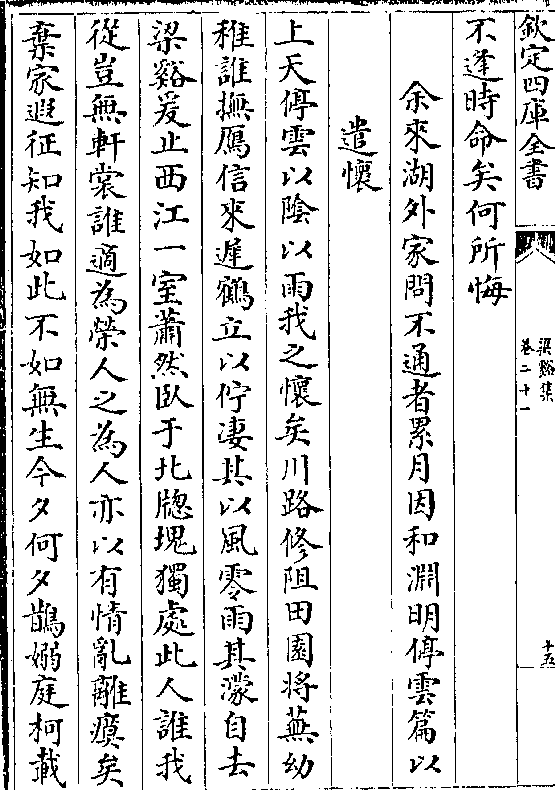 欽定四庫全書
梁谿集
卷二十一
十五
不逢時命矣何所悔
余來湖外家問不通者累月因和淵明停雲篇以
遣懷
上天停雲以陰以雨我之懷矣川路修阻田園將蕪幼
稚誰撫鴈信來遲鶴立以佇淒其以風零雨其濛自去
梁谿爰止西江一室蕭然臥于北牕塊獨處此人誰我
從豈無軒裳誰適為榮人之為人亦以有情亂離瘼矣
棄家遐征知我如此不如無生今夕何夕鵲嫋庭柯載